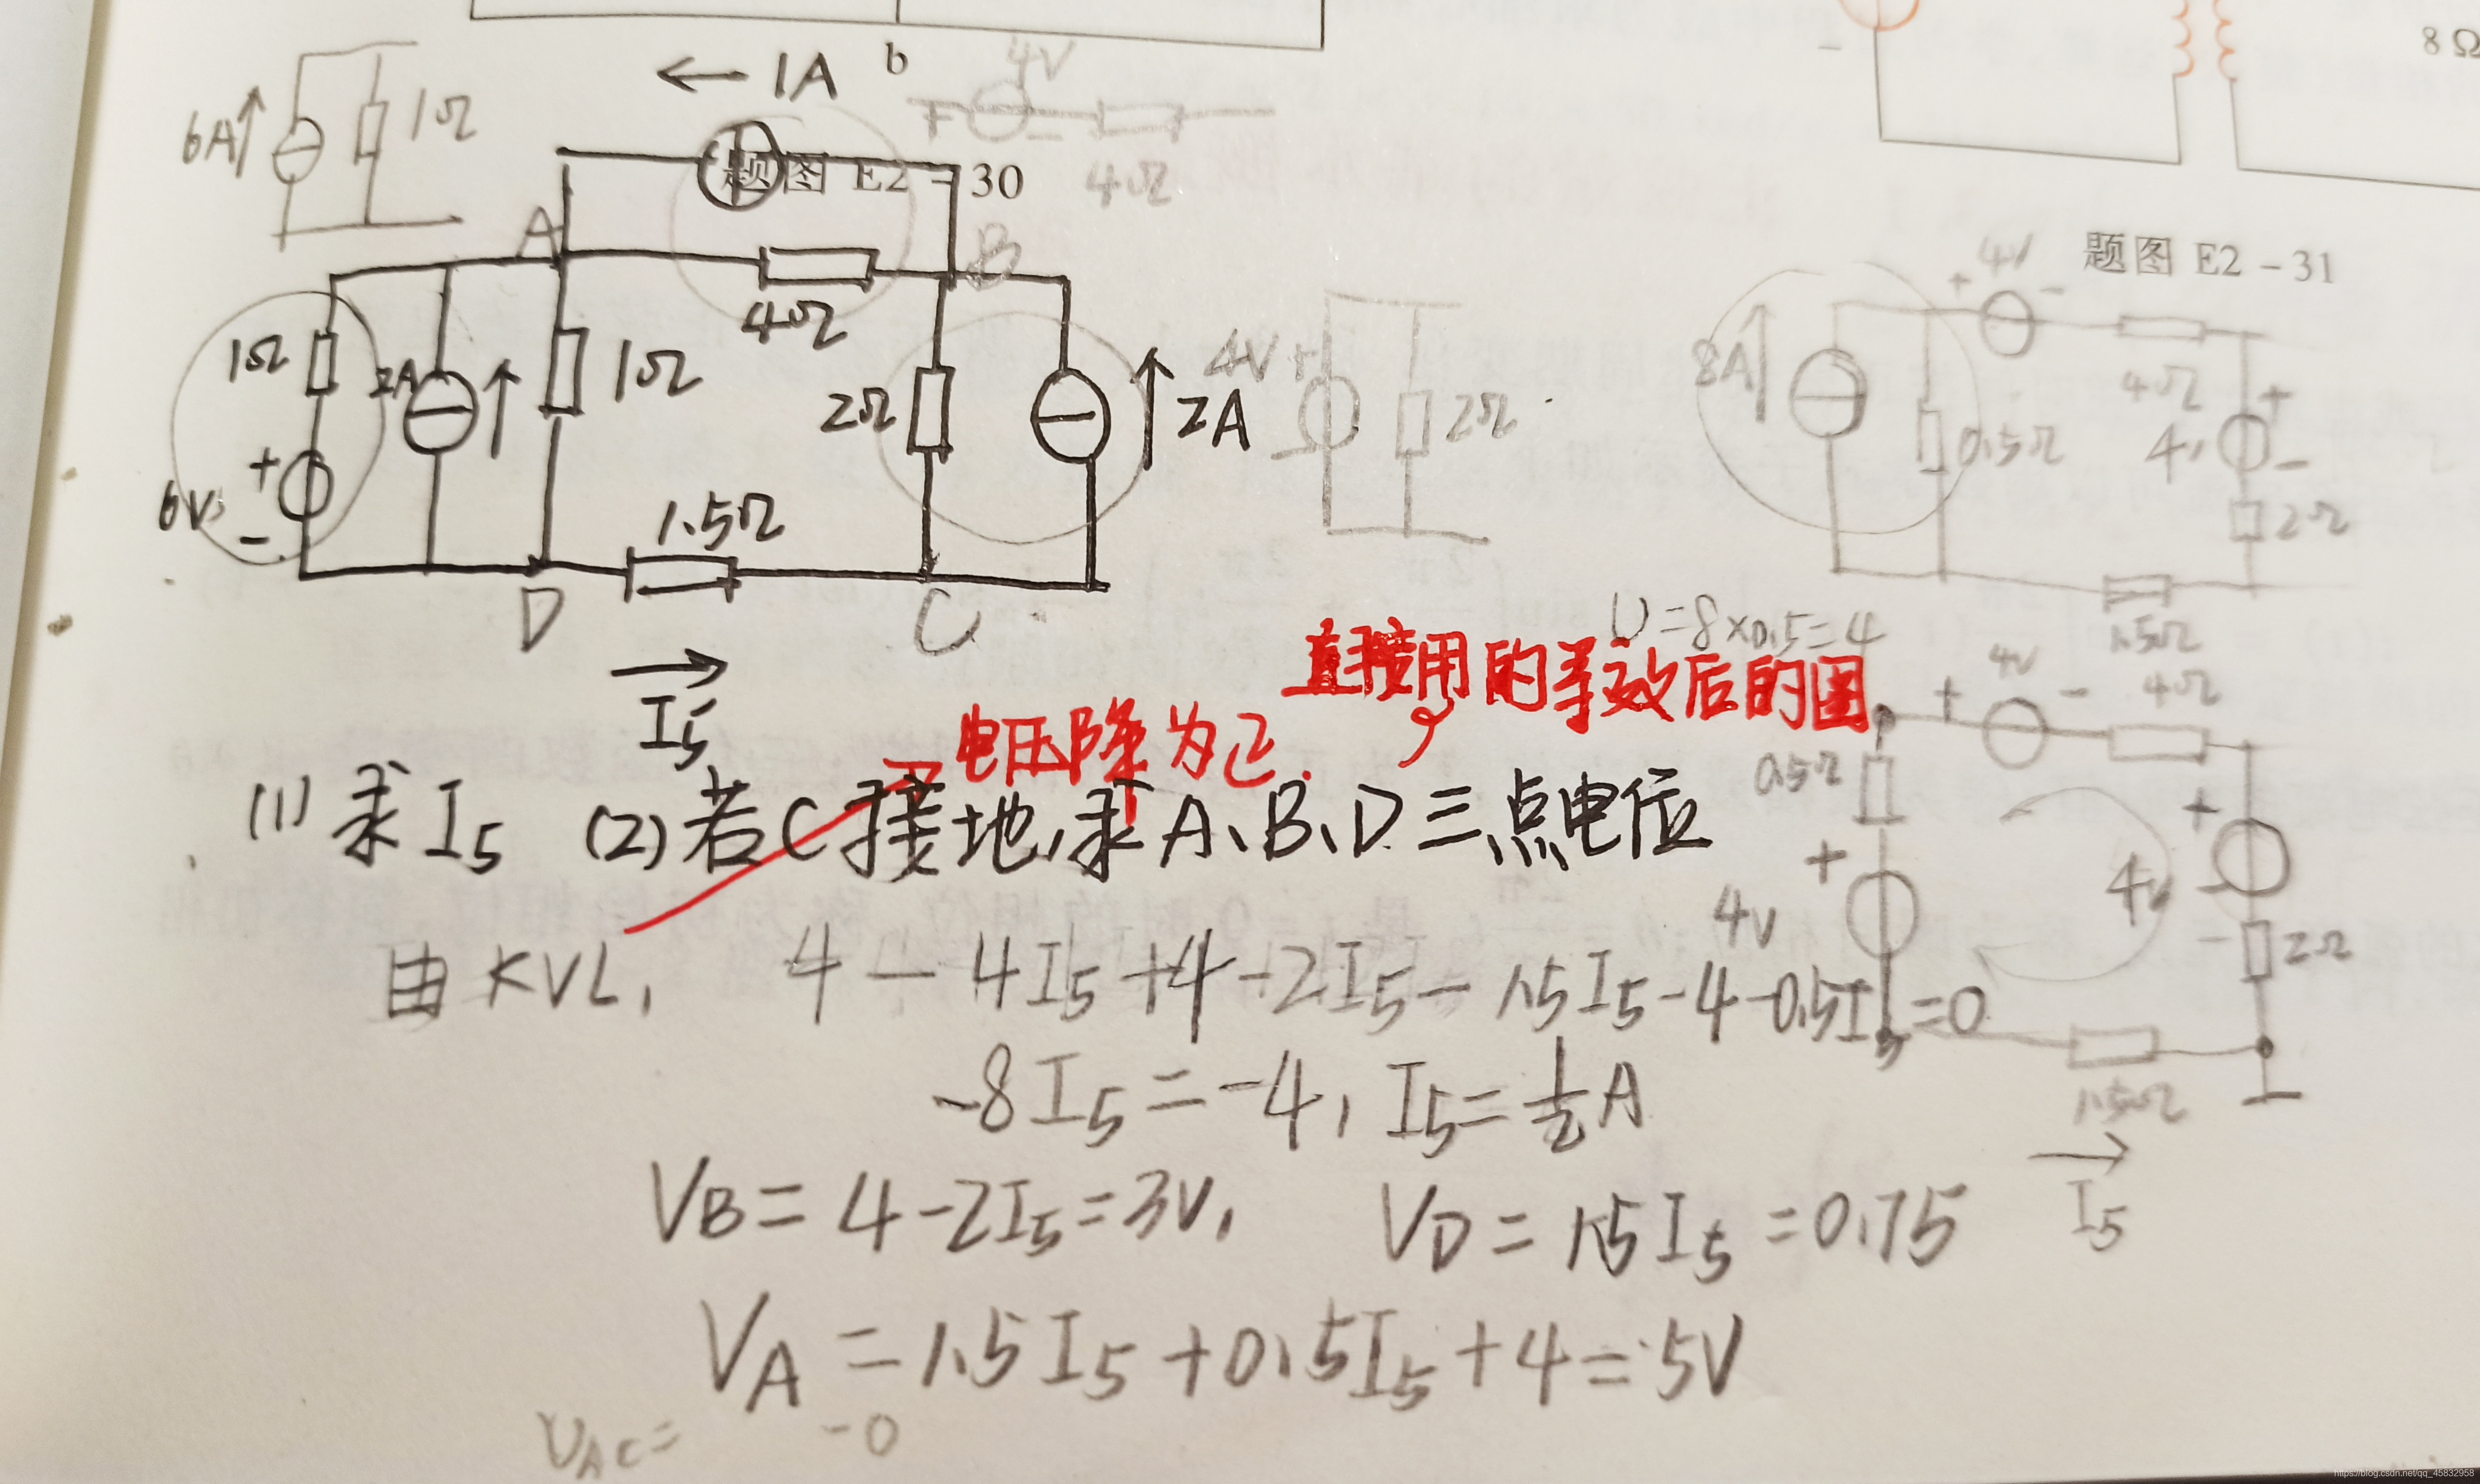 8Ω
b
← 1A
4V
+
−
4Ω
6A
1Ω
题图 E2-30
A
B
题图 E2-31
4V
+ −
8A
0.5Ω
4Ω
+
4V
−
2Ω
1.5Ω
1Ω
+
6V
−
2A
1Ω
4Ω
2Ω
2A
4V+
−
2Ω
1.5Ω
D
C
I5
U=8×0.5=4
直接用的等效后的图
电压降为正
(1) 求I5 (2) 若C接地,求A、B、D三点电位
4V
+ −
4Ω
0.5Ω
+
4V
+
4V
−
2Ω
1.5Ω
I5
由KVL, 4-4I5+4-2I5-1.5I5-4-0.5I5=0
-8I5=-4, I5=1/2A
VB=4-2I5=3V, VD=1.5I5=0.75
VA=1.5I5+0.5I5+4=5V
UAC= -0
https://blog.csdn.net/qq_45832958